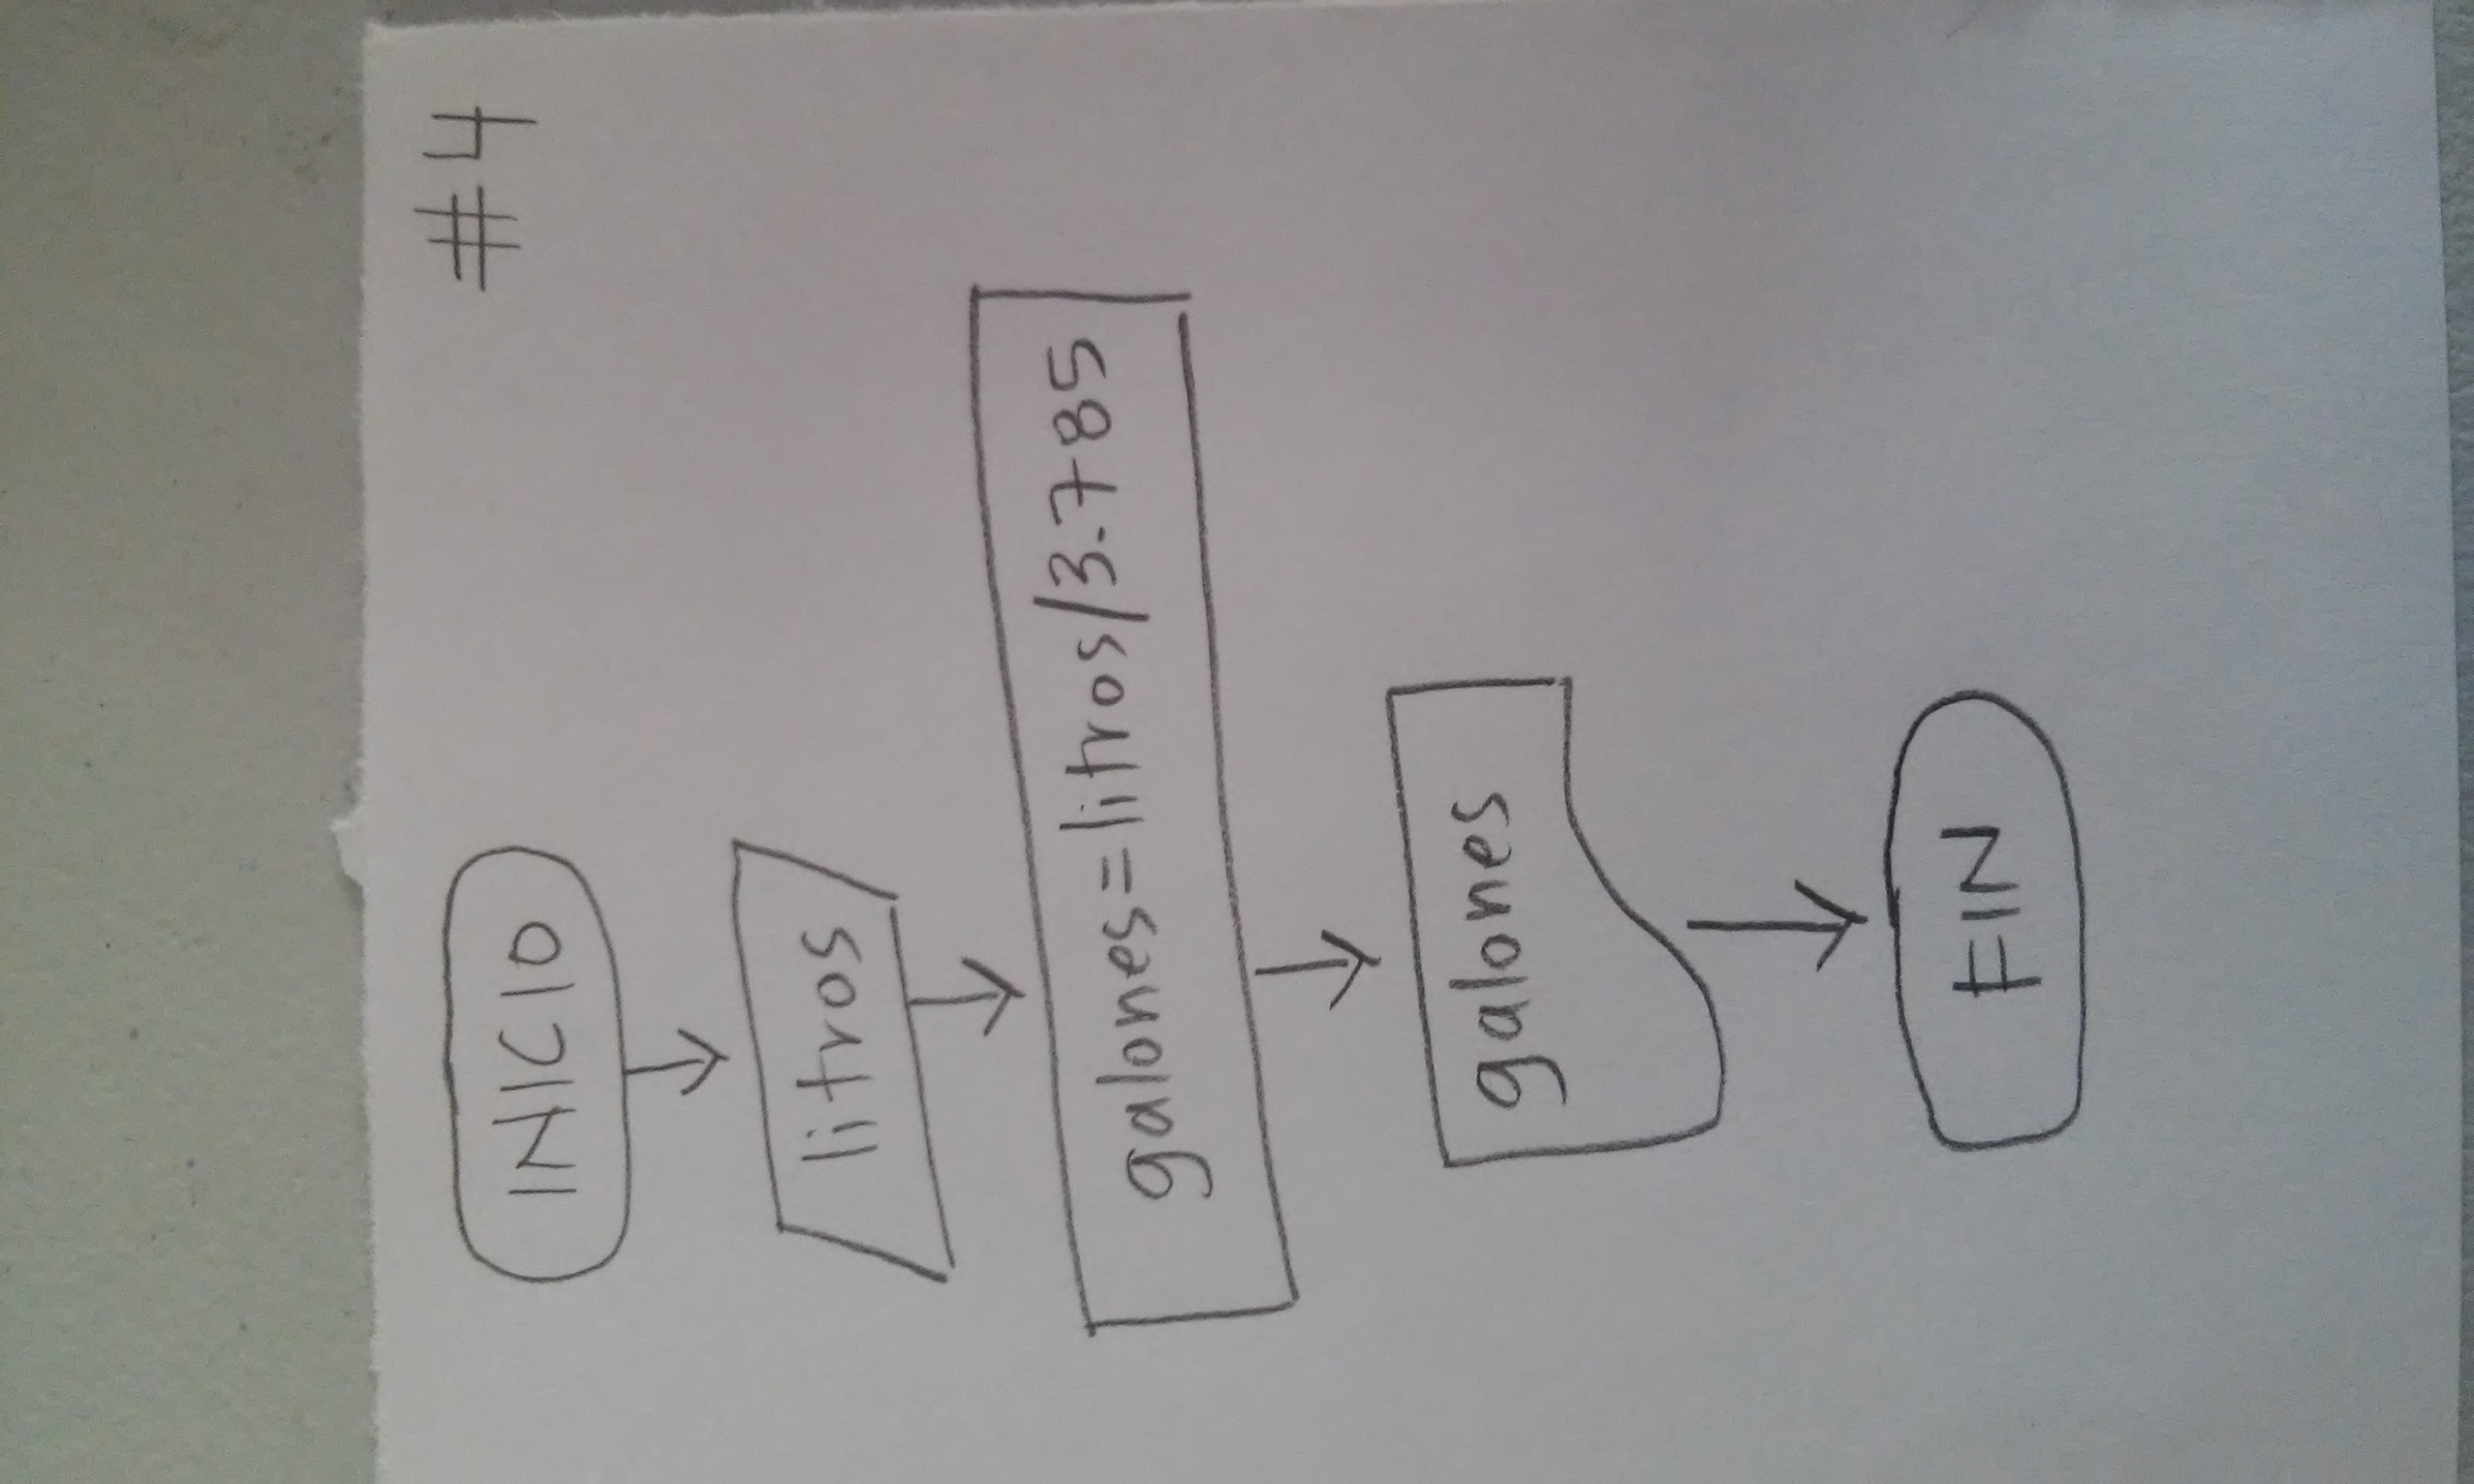 #4
INICIO
litros
galones=litros/3.785
galones
FIN